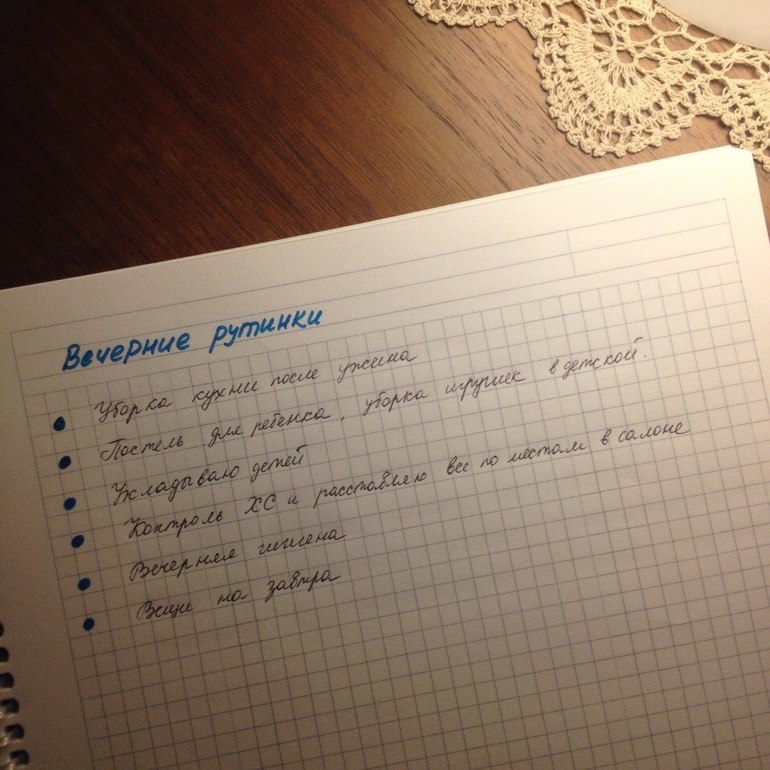 Вечерние рутинки
Уборка кухни после ужина
Постель для ребенка, уборка игрушек в детской.
Укладываю детей
Контроль ХС и расставляю все по местам в салоне
Вечерняя гигиена
Вещи на завтра